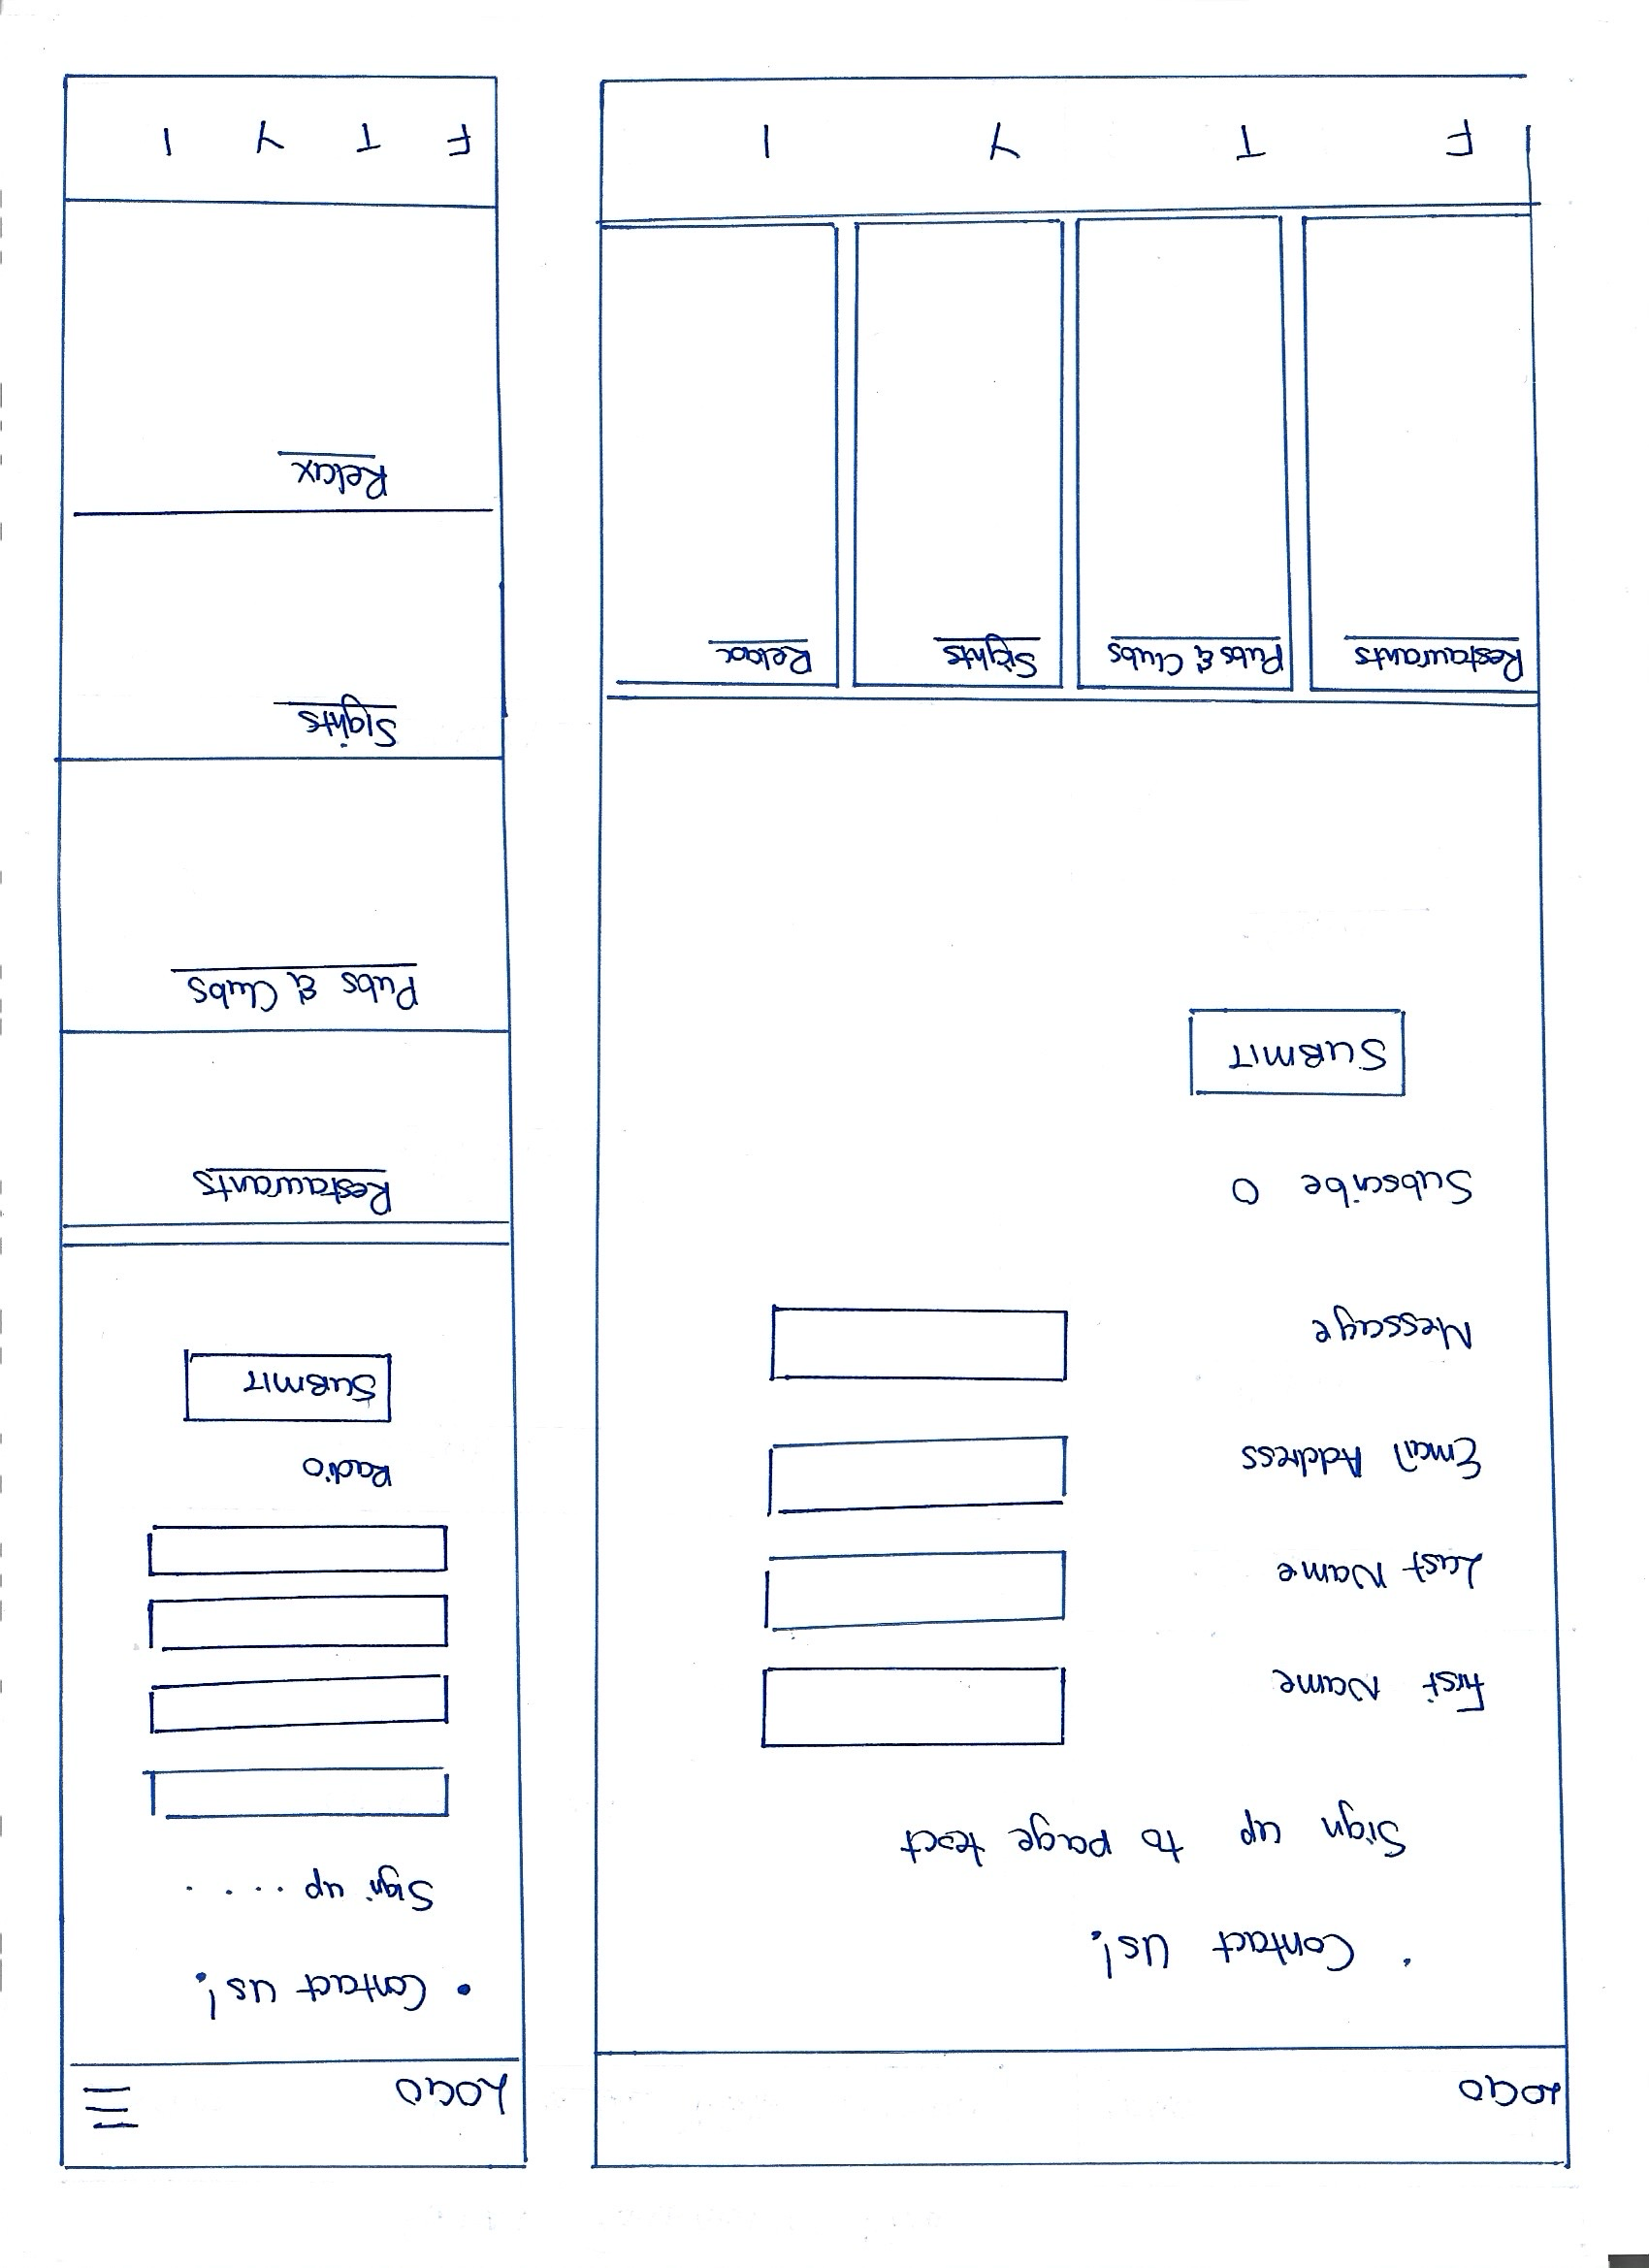 LOGO
• Contact Us!
Sign up to page text
First Name
Last Name
Email Address
Message
Subscribe O
SUBMIT
Restaurants
Pubs & Clubs
Sights
Relax
F T Y I
LOGO
• Contact us!
Sign up ....
Radio
SUBMIT
Restaurants
Pubs & Clubs
Sights
Relax
F T Y I